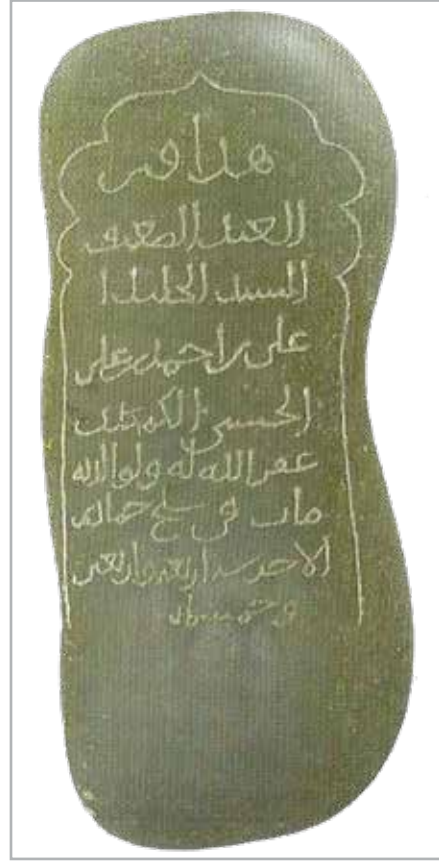 هذا قبر
العبد الضعيف
السيد الجليل ا
على بن احمد بن على
الحسيني
غفر الله له ولوالديه
مات في سلخ جمادى
الاخر سنة اربعة واربعين
وخمسمائة